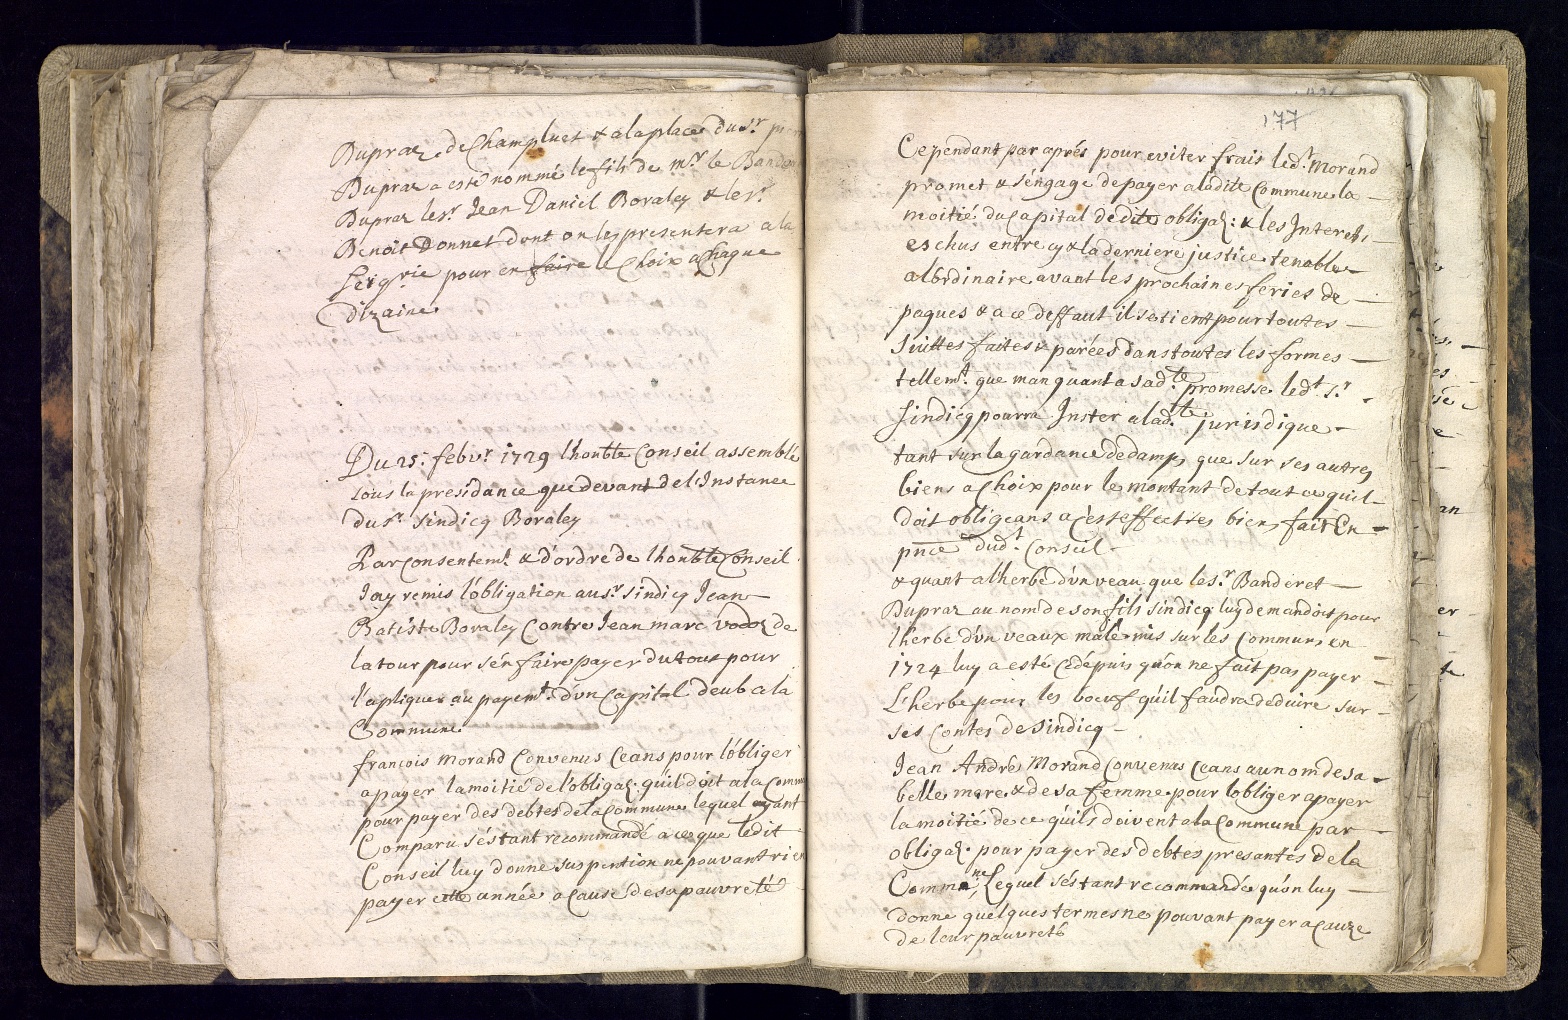 Dupraz de Champluet & a la place du sr
Dupraz a esté nommé le fils de mr le
Dupraz le sr Jean Daniel Boraley & le sr
Benoit Donnet dont on les presentera a la
Seigrie pour en faire le Choix a Chaque
Dizaine
Du 25: febvr. 1729 lhonble Conseil assemblé
sous la presidance que devant de l'Instance
du sr Sindicq Boraley
Par Consentemt & d'ordre de lhonble Conseil
Jay remis l'obligation au sr Sindicq Jean
Batiste Boraley Contre Jean marc de
la tour pour s'en faire payer du tout pour
l'apliquer au payemt d'un Capital deub a la
Commune
françois Morand Convenus Ceans pour l'obliger
a payer la moitié de l'obligaz. quil doit a la
pour payer des debtes de la Commune lequel ayant
Comparu s'estant recommandé a ce que ledit
Conseil luy donne suspention ne pouvant rien
payer cette année a Cause de sa pauvreté
177
Cependant par aprés pour eviter frais ledt Morand
promet & s'engage de payer a ladite Commune la
moitié du Capital de dite obligaz: & les Interets
eschus entre cy & la derniere justice tenable
a lordinaire avant les prochaines feries de
paques & a ce deffaut il se tient pour toutes
suittes faites & parées dans toutes les formes
tellemt que manquant a sadte promesse ledt Sr
Sindicq pourra Inster a ladtte jurisdique
tant sur la gardance de damp que sur ses autres
biens a Choix pour le montant de tout ce quil
doit obligeans a c'est effect ses biens fait En
pnce dudt Conseil
& quant a lherbe d'un veau que le sr Banderet
Dupraz au nom de son fils sindicq luy demandoit pour
lherbe d'un veaux male mis sur les Communs en
1724 luy a esté Cedé puis qu'on ne fait pas payer
L'herbe pour les boeuf qu'il faudra deduire sur
ses Contes de Sindicq
Jean André Morand Convenus Ceans au nom de sa
belle mere & de sa femme pour lobliger a payer
la moitié de ce qu'ils doivent a la Commune par
obligaz. pour payer des debtes presantes de la
Comme, Lequel s'estant recommandé qu'on luy
donne quelques termes ne pouvant payer a cauze
de leur pauvreté